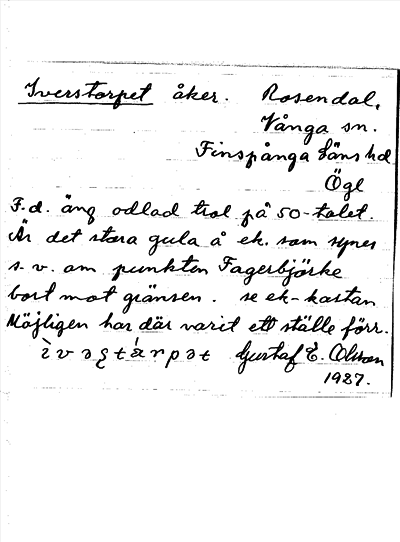 Iverstorpet åker. Rosendal,
Vånga sn.
Finspånga läns hd
Ögl
F.d. äng odlad trol på 50-talet.
Är det stora gula å ek. som synes
s.v. om punkten Fagerbjörke
bort mot gränsen. se ek-kartan
Möjligen har där varit ett ställe förr.
Gustaf E. Olsson
1927.